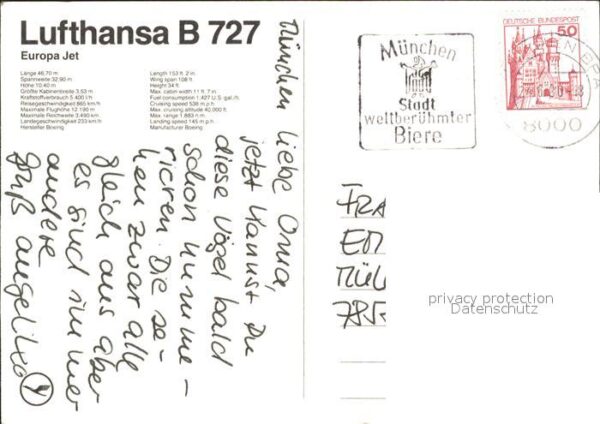 Lufthansa B 727
Europa Jet
Länge 46,70 m
Spannweite 32,90 m
Höhe 10,40 m
Größte Kabinenbreite 3,53 m
Kraftstoffverbrauch 5 400 l/h
Reisegeschwindigkeit 865 km/h
Maximale Flughöhe 12 190 m
Maximale Reichweite 3.490 km
Landegeschwindigkeit 233 km/h
Hersteller Boeing
Length 153 ft. 2 in.
Wing span 108 ft.
Height 34 ft.
Max. cabin width 11 ft. 7 in.
Fuel consumption 1.427 U.S. gal./h
Cruising speed 538 m p h
Max. cruising altitude 40,000 ft.
Max. range 1.883 n m
Landing speed 145 m p h
Manufacturer Boeing
München
liebe Oma,
jetzt kannst Du
diese Vögel bald
schon numme-
rieren. Die se-
hen zwar alle
gleich aus aber
es sind immer
andere.
Gruß Angelika
München
Stadt
weltberühmter
Biere
DEUTSCHE BUNDESPOST
50
8000
FRA
MÜL
785
privacy protection
Datenschutz